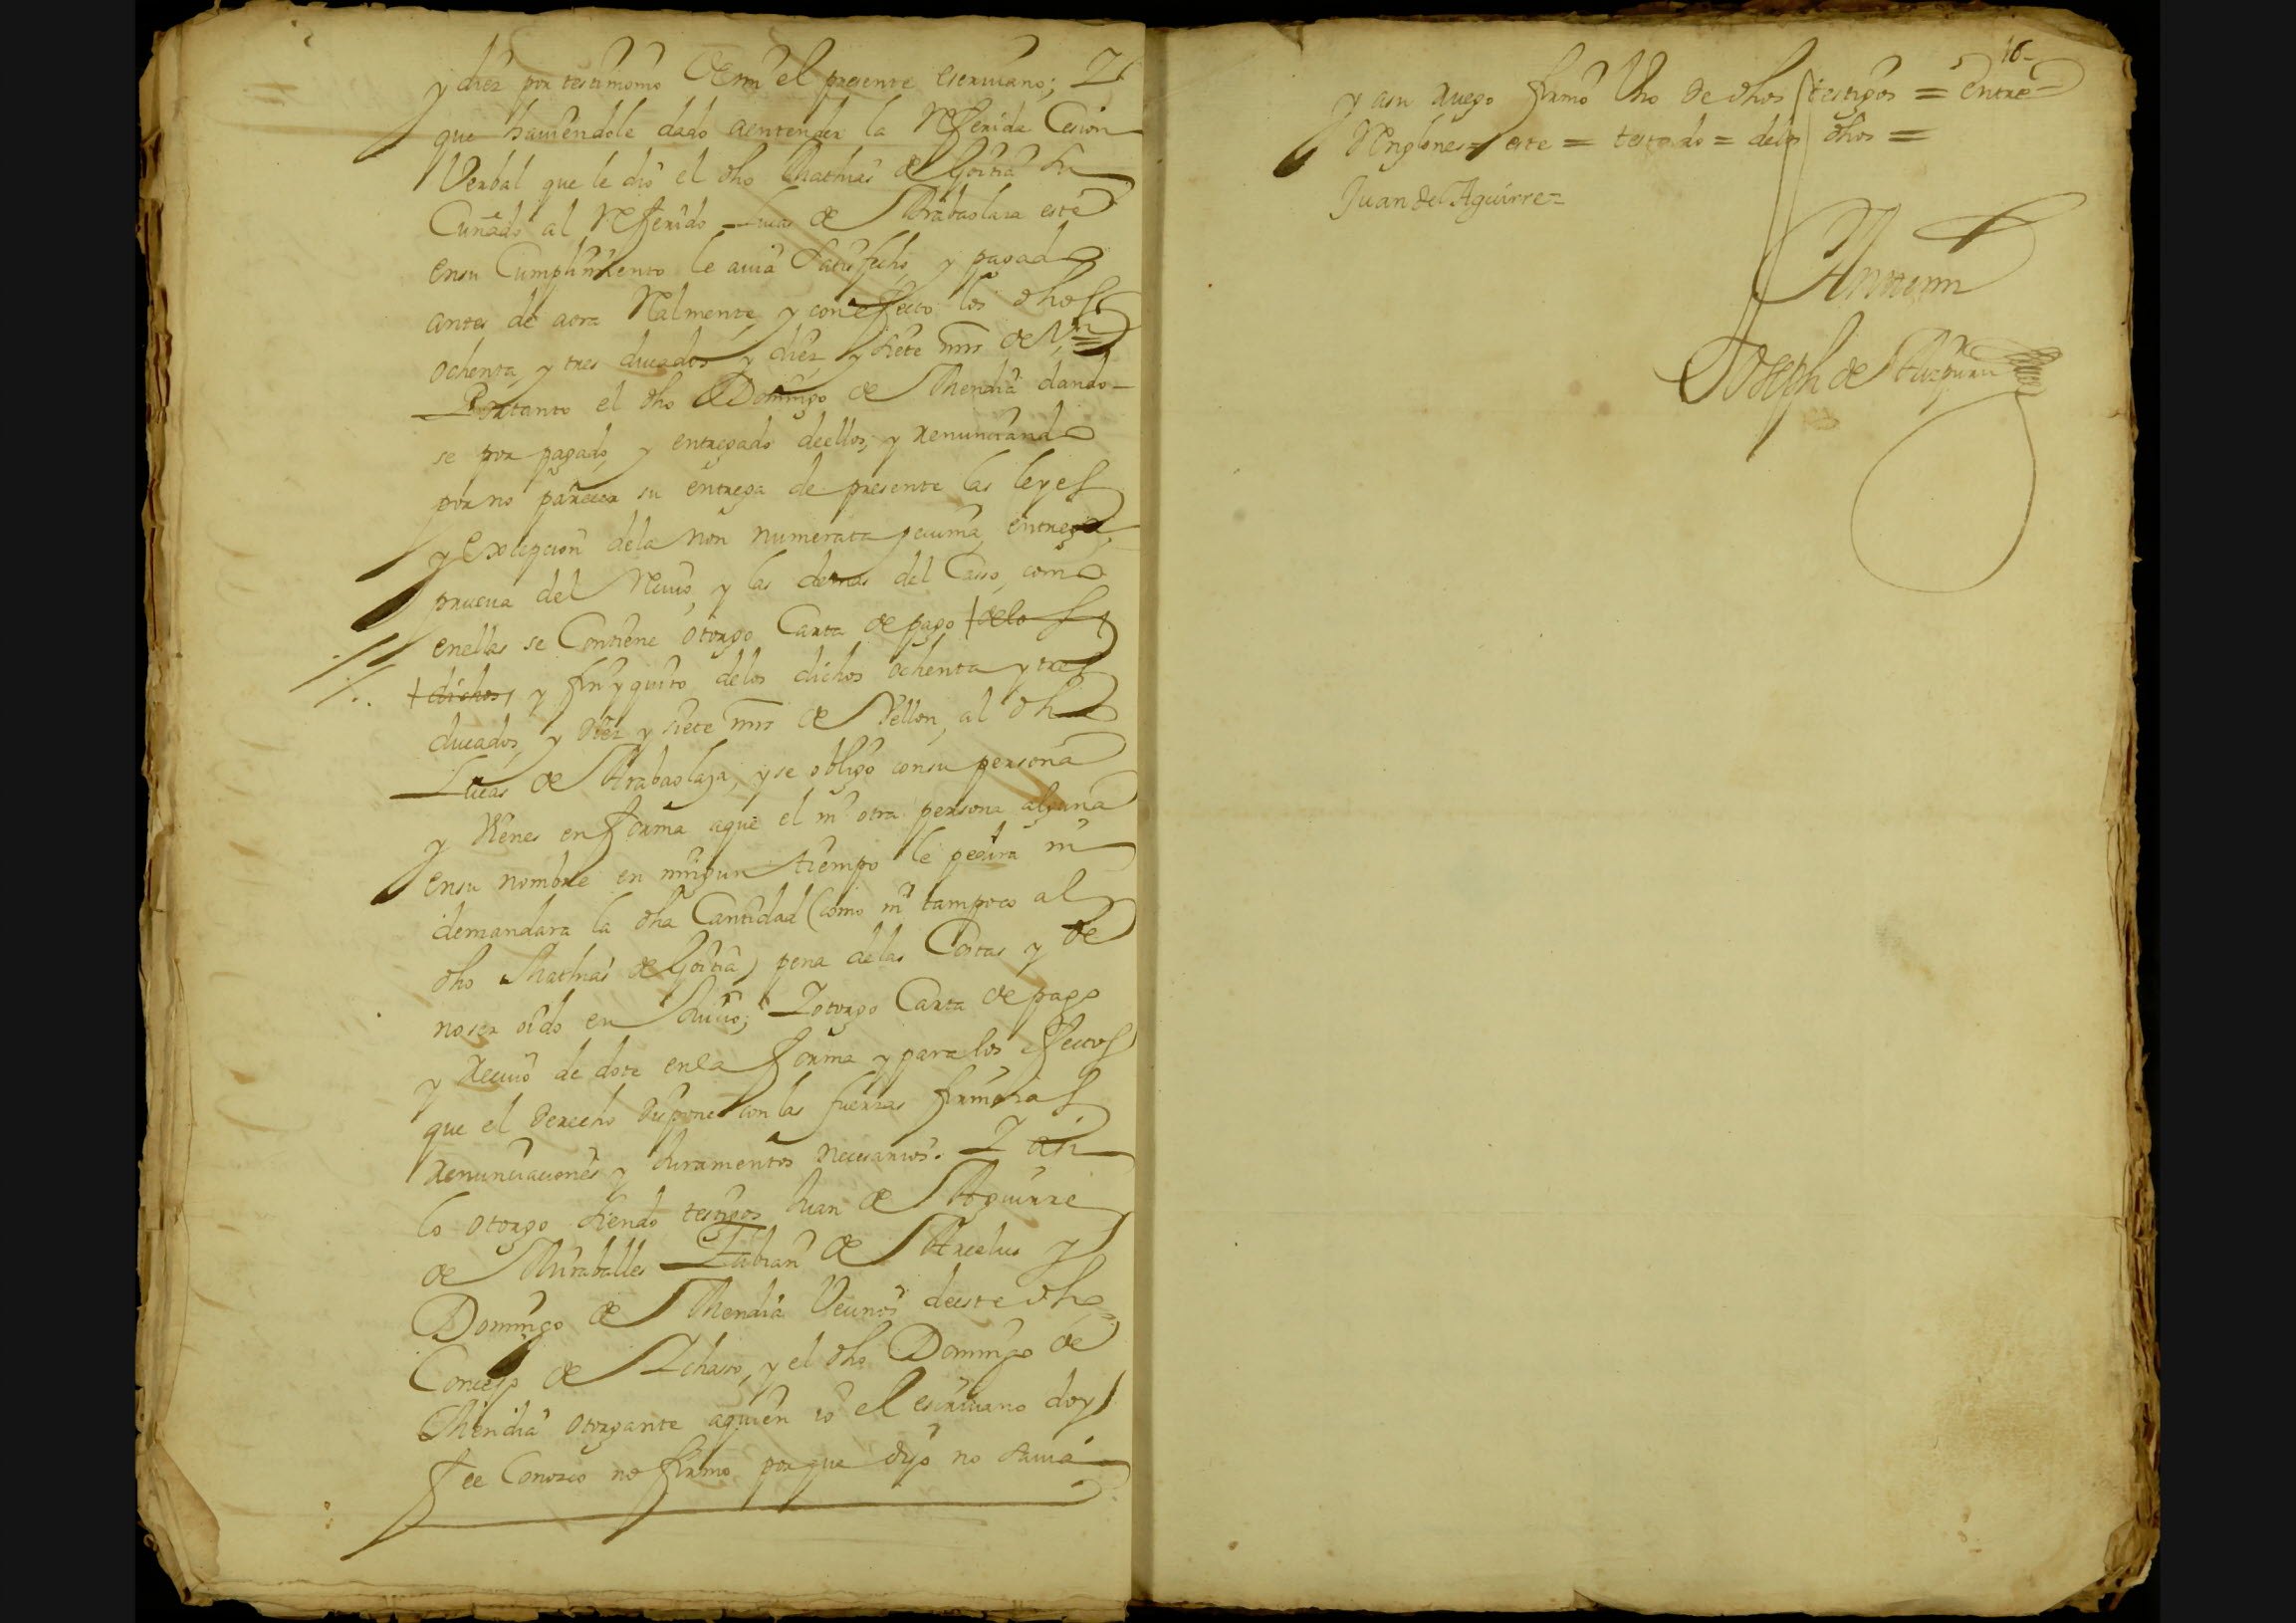 y diez por testimonio de mi el presente escriuano; Y
que hauiendole dado aentender la Referida Cesion
Verbal que le dio el dho Mathias de Goitia su
Cuñado al Referido Lucas de Arabaolaza este
ensu Cumplimiento le auia satisfecho, y pagado
antes de aora Realmente, y con efecto los dhos
ochenta y tres ducados y diez y siete mrs de Vn =
Portanto el dho Domingo de Mendia dando-
se por pagado, y entregado deellos, y renunciando
por no parecer su entrega de presente las leyes
y excepcion dela non numerata pecunia, entrega,
prueua del Reciuo, y las demas del Casso, como
enellas se Contiene otorgo Carta de pago delos
dichos, y finyquito delos dichos ochenta y tres
ducados, y diez y siete mrs de Vellon, al dho
Lucas de Arabaolaza, y se obligo consu persona
y Vienes en forma aque el ni otra persona alguna
ensu nombre en ningun tiempo le pedira ni
demandara la dha Cantidad (como ni tampoco al
dho Mathias de Goitia) pena delas Costas y de
noser oido en Juicio; Y otorgo Carta de pago
y reciuo de dote enla forma y para los efectos
que el derecho dispone con las fuerzas firmezas
renunciaciones y Juramentos necesarios. Y asi
lo otorgo siendo testigos Juan de Aguirre
de Miraballes Fabian de Arcelus y
Domingo de Mendia Vecinos deeste dho
Concejo de Ichaso, y el dho Domingo de
Mendia otorgante aquien io el escriuano doy
fee Conozco no firmo porque dijo no sauia
16-
y asu ruego firmo Vno de dhos testigos = entre
Renglones = este = testado = delos dhos =
Juan de Aguirre =
Antemi
Joseph de